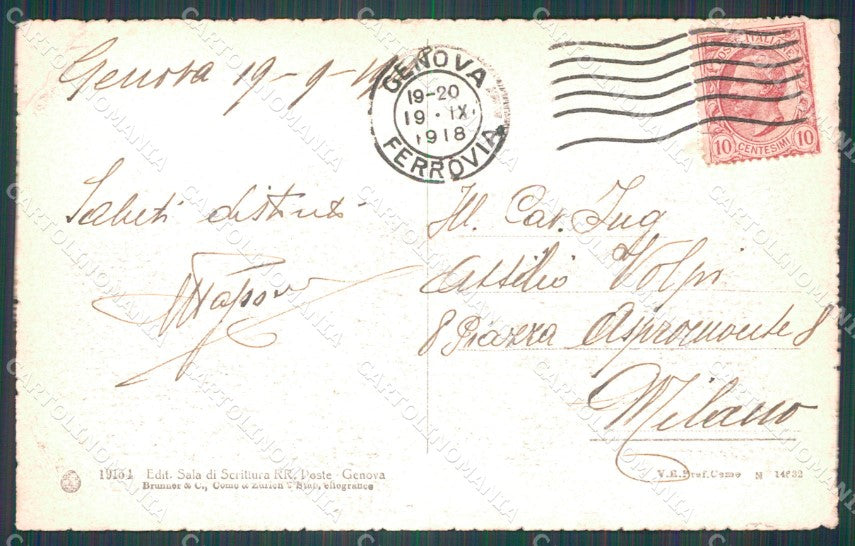 Genova 19-9-
GENOVA
19-20
19 · IX.
1918
FERROVIA
POSTE ITALIANE
10 CENTESIMI 10
Saluti distinti
Ill. Cav. Ing
Attilio Volpi
8 Piazza Aspromonte 8
Milano
19164 Edit. Sala di Scrittura RR. Poste Genova
Brunner & C., Como & Zurich
V.E. Pref. Como N
CARTOLINOMANIA